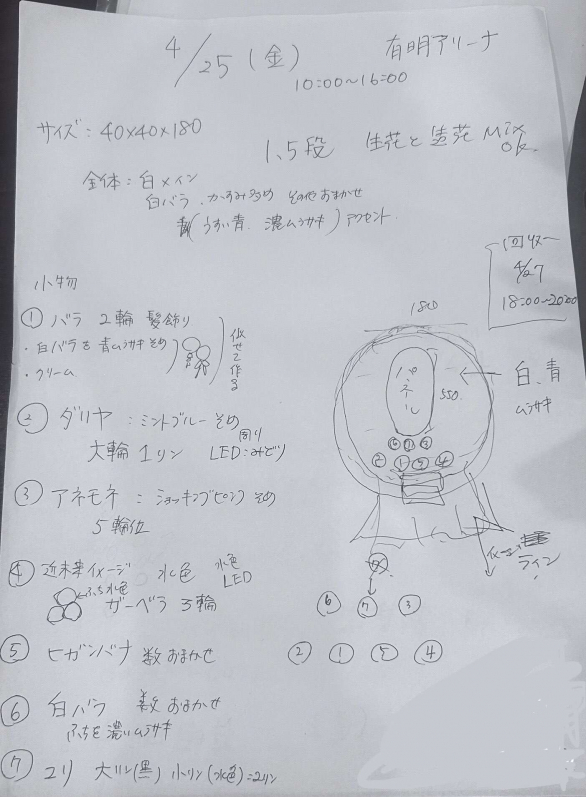 4/25(金)
有明アリーナ
10:00〜16:00
サイズ:40×40×180
1.5段 生花と造花 Mix ok
全体:白メイン
白バラ.かすみ多め その他おまかせ
青(うすい青.濃ムラサキ)アクセント.
回収
4/27
18:00〜20:00
小物
① バラ 2輪 髪飾り
・白バラを青ムラサキそめ
・クリーム
似せて作る
② ダリヤ:ミントブルーそめ
大輪1リン 周り LED:みどり
③ アネモネ:ショッキングピンクそめ
5輪位
④ 近未来イメージ 水色 水色LED
ふち水色
ガーベラ 3輪
⑤ ヒガンバナ 数おまかせ
⑥ 白バラ 数おまかせ
ふちを濃いムラサキ
⑦ ユリ 大リン(黒) 小リン(水色)=2リン
180
パネル
550
白、青
ムラサキ
⑥ ⑦ ③
② ① ⑤ ④
イメージ
ライン
⑥ ⑦ ③
② ① ⑤ ④